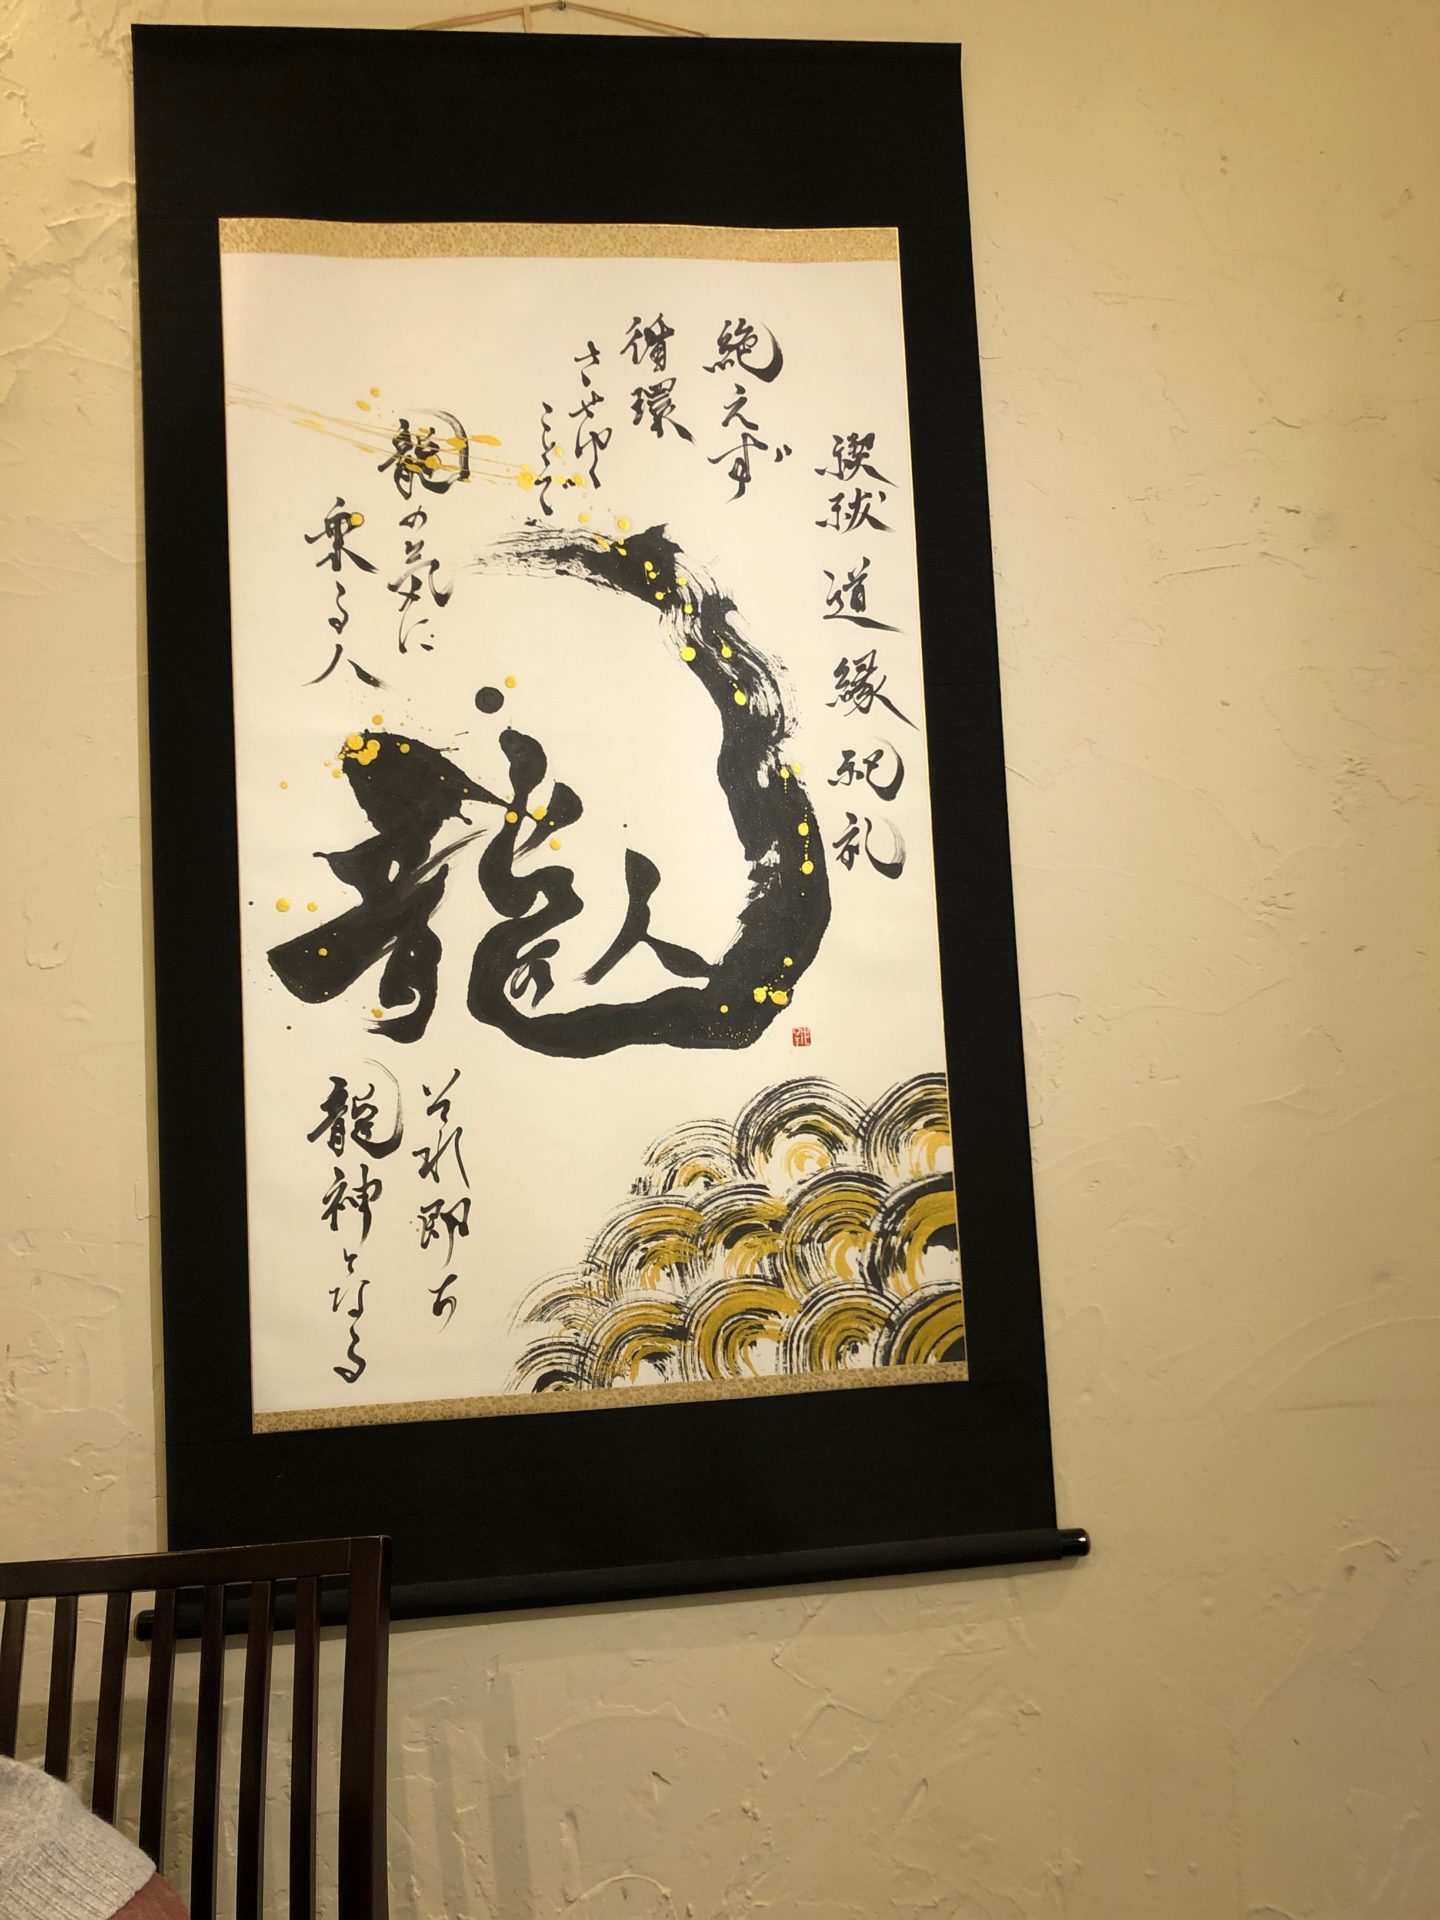 禊祓道縁祀礼
絶えず
循環
させゆく
ことで
龍の気に
乗る人
龍
の
人
公水即ち
龍神となる